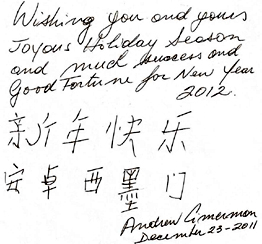 Wishing you and yours
Joyous Holiday Season
and much success and
Good Fortune for New Year
2012.
新年快乐
安卓西墨门
Andrew Cimerman
December 23-2011